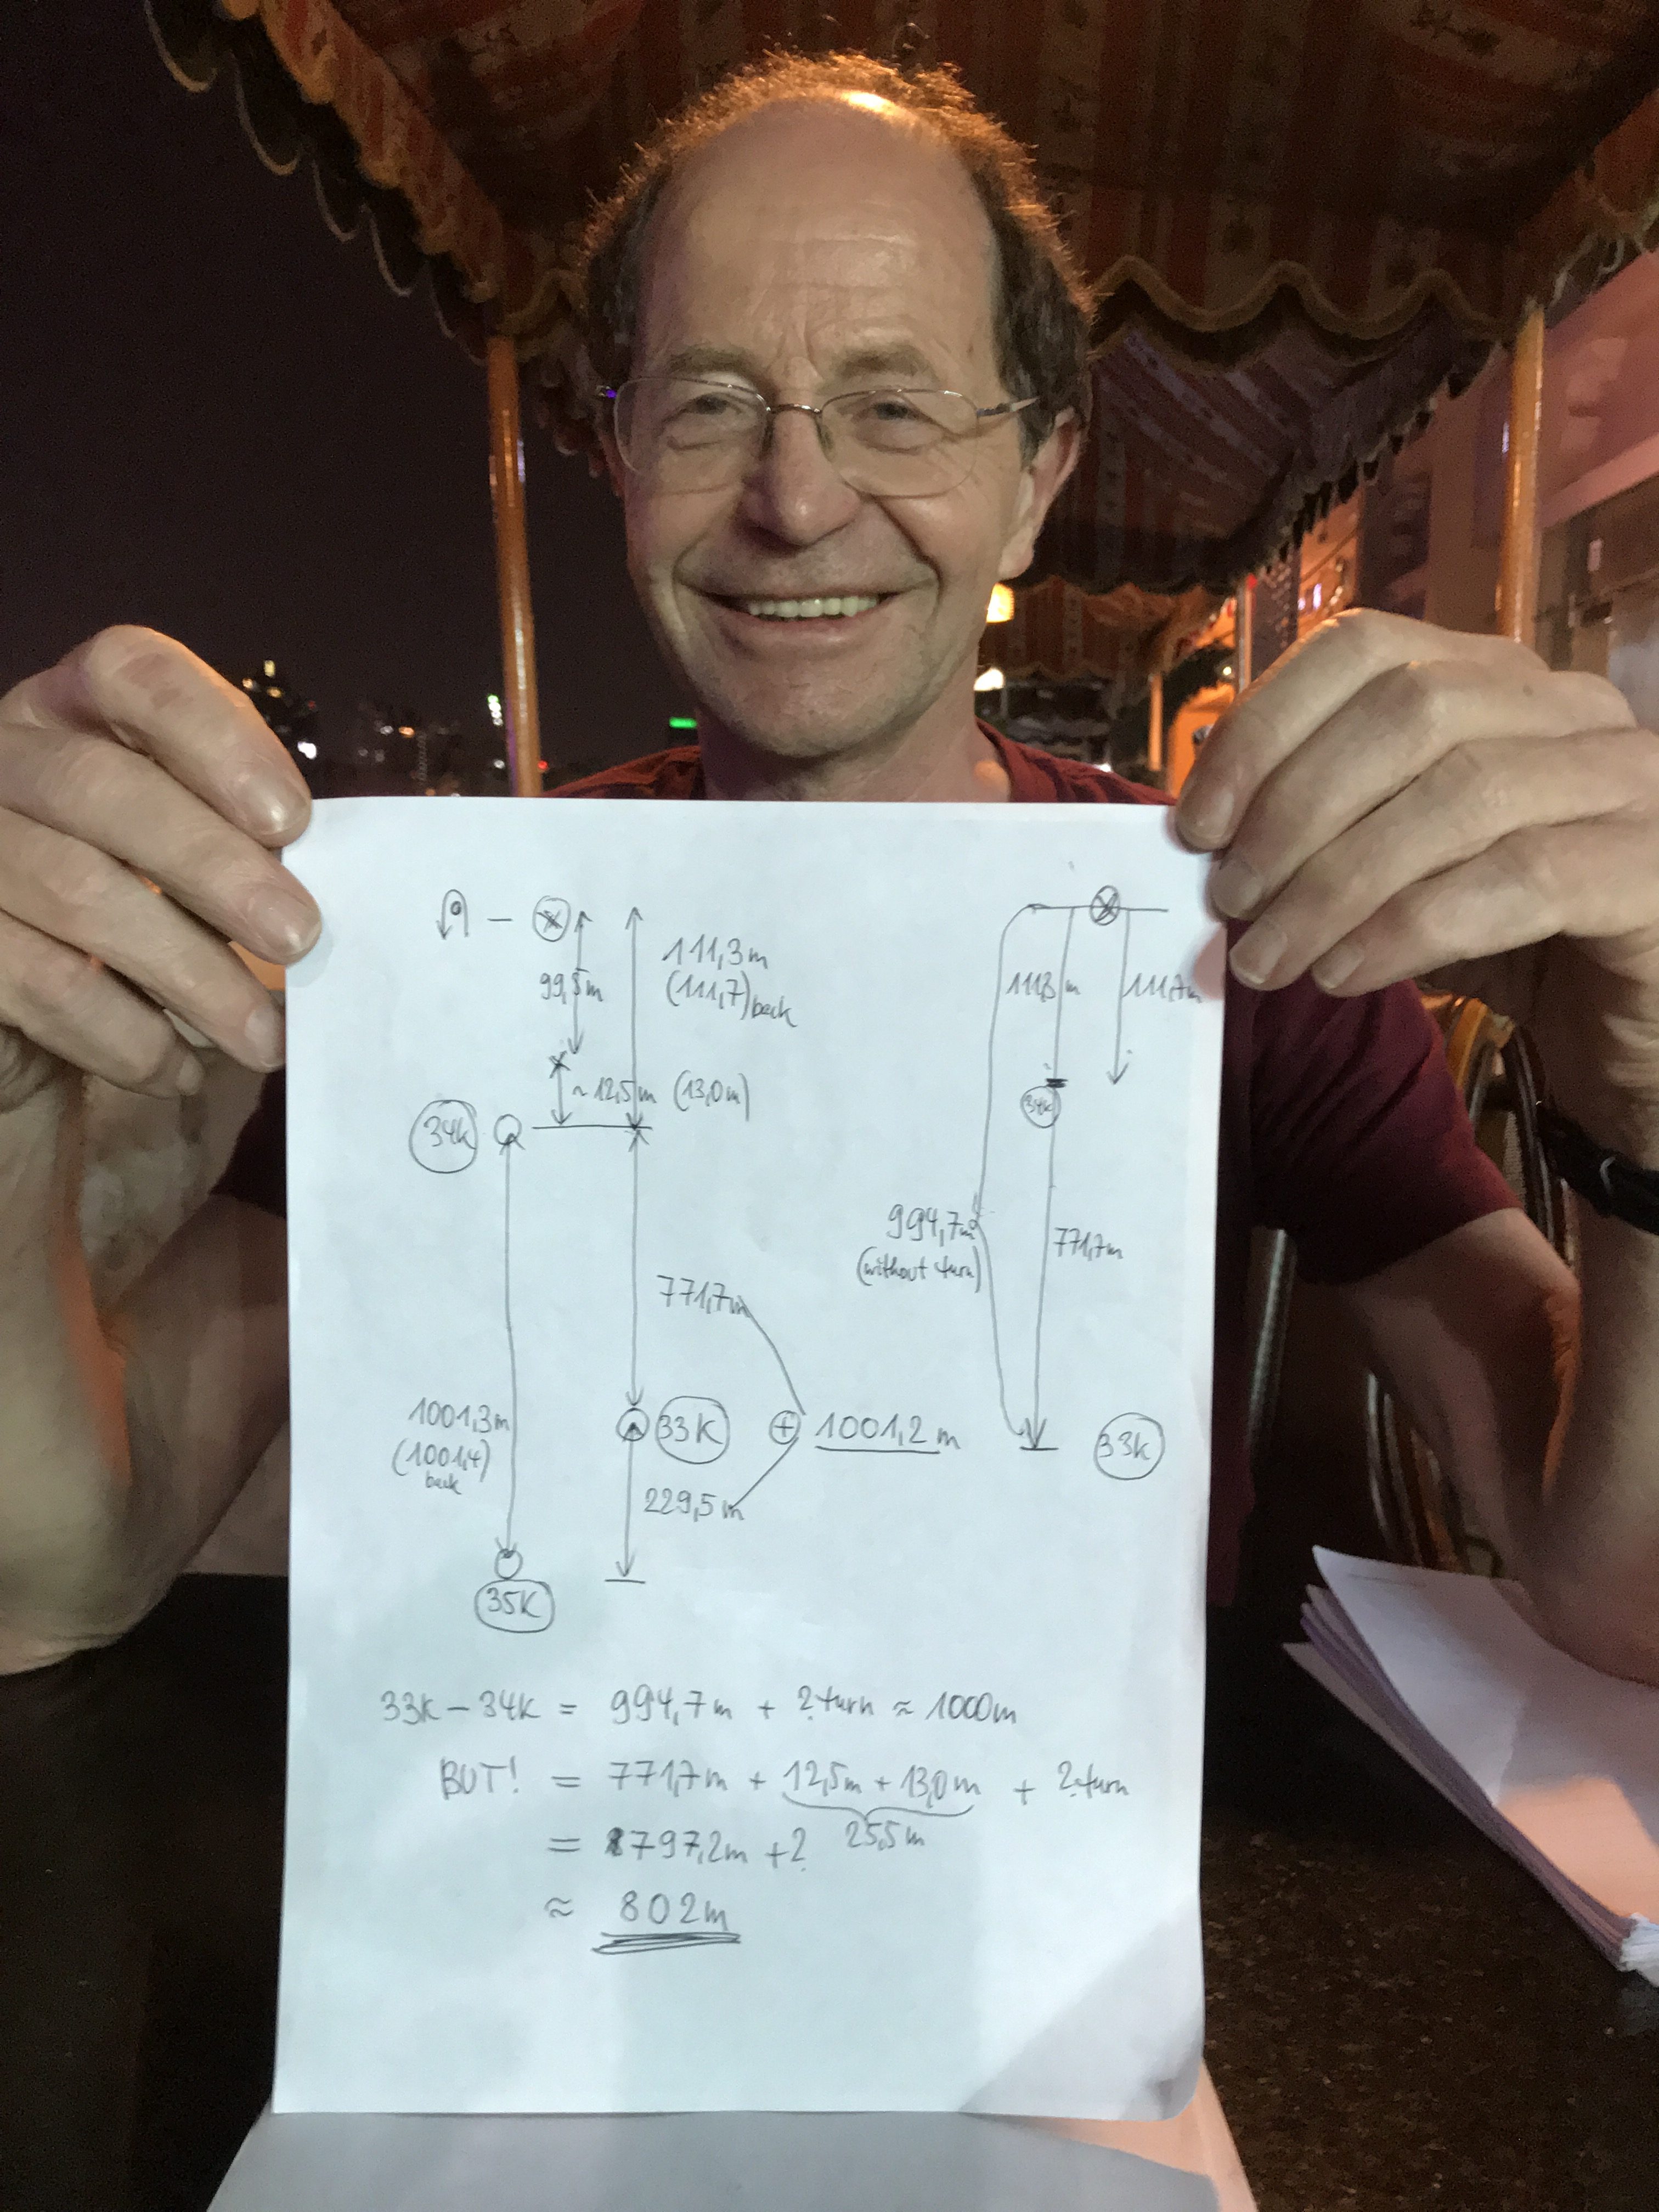 99,8m
111,3m
(111,7) back
~12,5m (13,0m)
34K
771,7m
1001,3m
(1001,4)
back
33K
+ 1001,2m
229,5m
35K
111,3m
111,7m
34K
994,7m
(without turn)
771,7m
33K
33K – 34K = 994,7m + ? turn ≈ 1000m
BUT! = 771,7m + 12,5m + 13,0m + ? turn
25,5m
= 797,2m + ?
≈ 802m